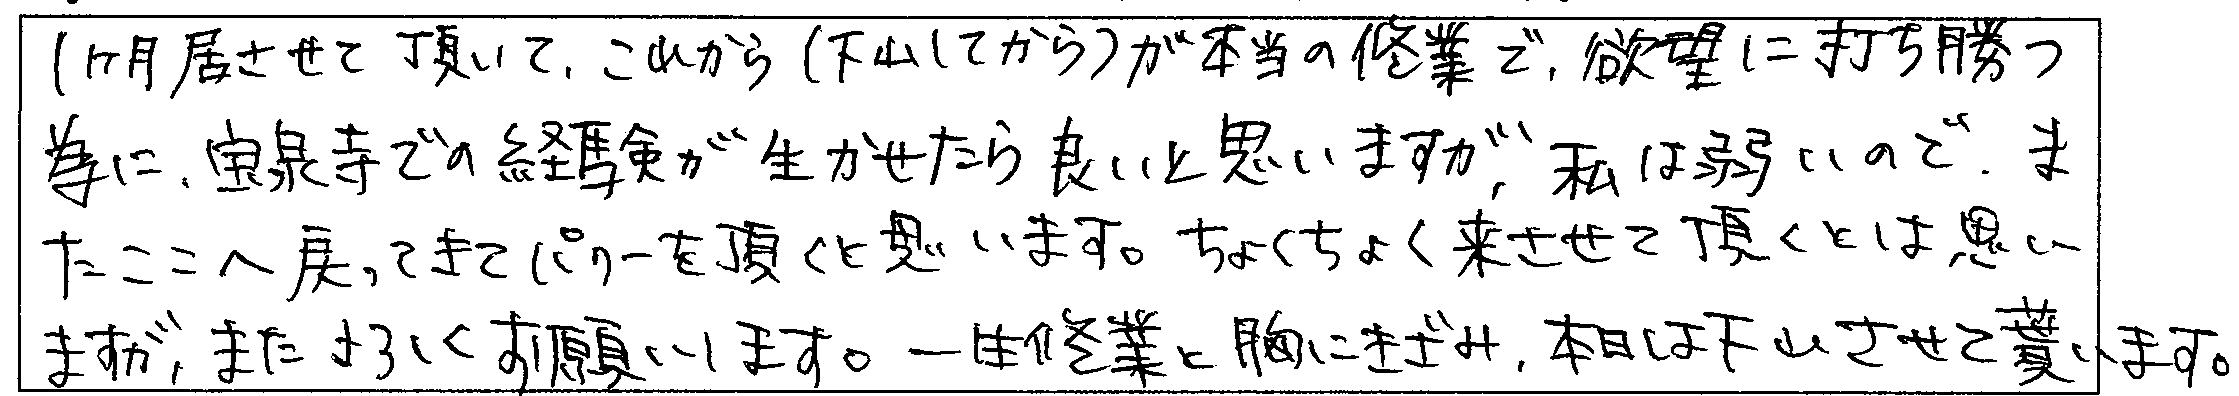 1ヶ月居させて頂いて、これから(下山してから)が本当の修業で、欲望に打ち勝つ
為に、宝泉寺での経験が生かせたら良いと思いますが、私は弱いので、ま
たここへ戻ってきてパワーを頂くと思います。ちょくちょく来させて頂くとは思い
ますが、またよろしくお願いします。一生修業と胸にきざみ、本日は下山させて貰います。